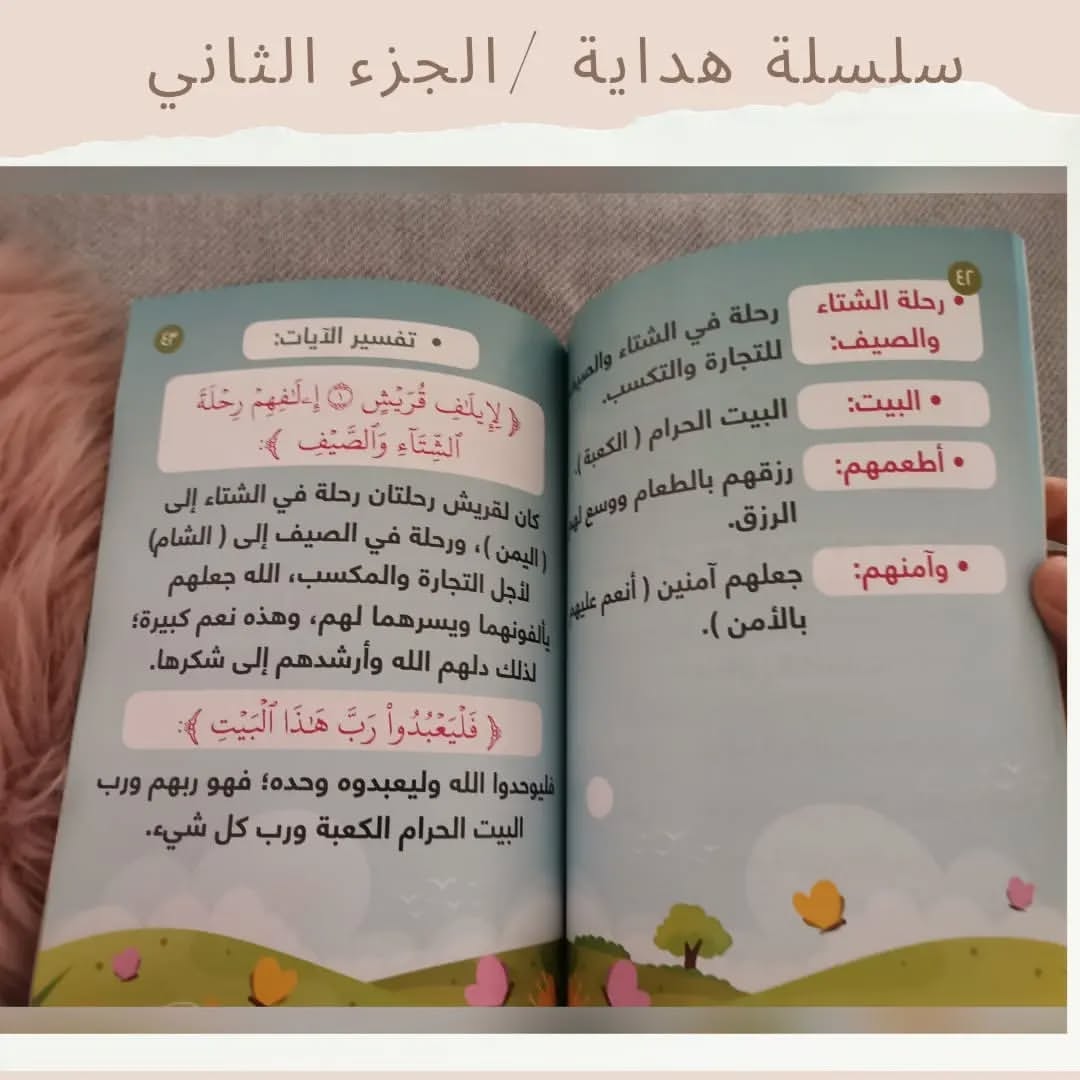 سلسلة هداية /الجزء الثاني
٤٢
• رحلة الشتاء
والصيف:
رحلة في الشتاء والصيف
للتجارة والتكسب.
• البيت:
البيت الحرام ( الكعبة ).
• أطعمهم:
رزقهم بالطعام ووسع لهم
الرزق.
• وآمنهم:
جعلهم آمنين ( أنعم عليهم
بالأمن ).
٤٣
• تفسير الآيات:
﴿ لِإِيلَٰفِ قُرَيْشٍ ١ إِۦلَٰفِهِمْ رِحْلَةَ
ٱلشِّتَآءِ وَٱلصَّيْفِ ﴾:
كان لقريش رحلتان رحلة في الشتاء إلى
( اليمن )، ورحلة في الصيف إلى ( الشام)
لأجل التجارة والمكسب، الله جعلهم
يألفونهما ويسرهما لهم، وهذه نعم كبيرة؛
لذلك دلهم الله وأرشدهم إلى شكرها.
﴿ فَلْيَعْبُدُوا۟ رَبَّ هَٰذَا ٱلْبَيْتِ ﴾:
فليوحدوا الله وليعبدوه وحده؛ فهو ربهم ورب
البيت الحرام الكعبة ورب كل شيء.